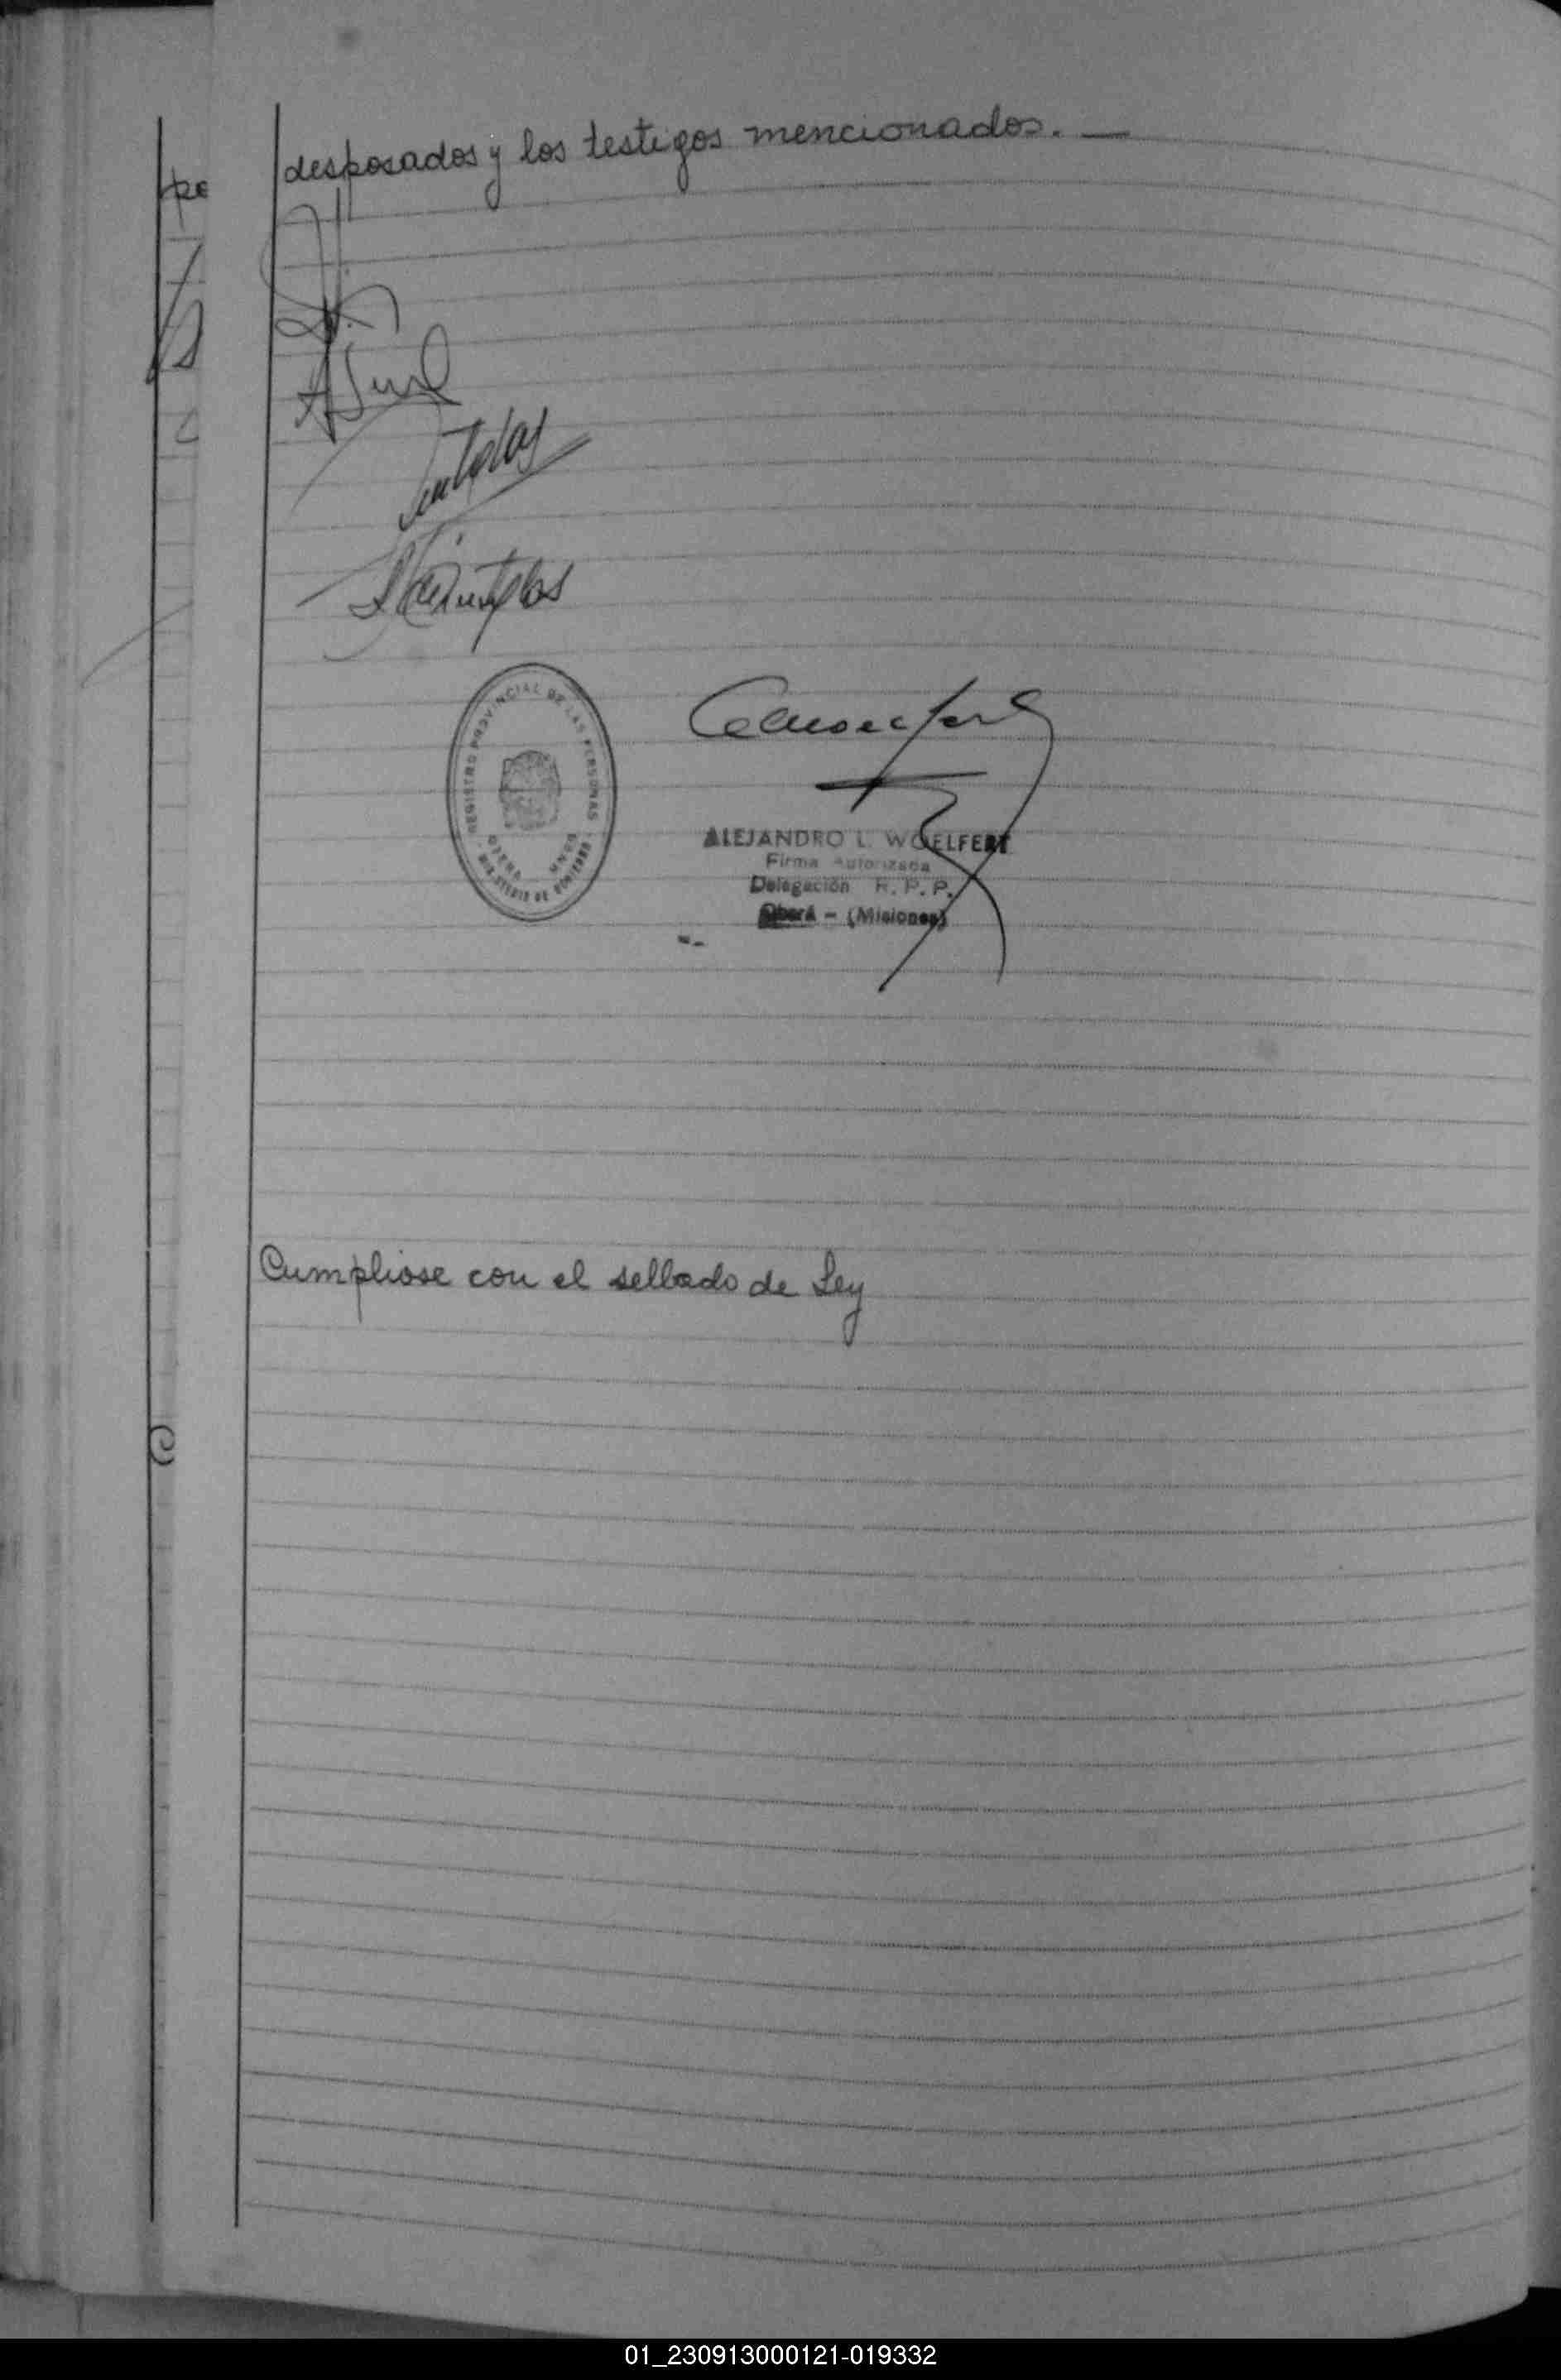 desposados y los testigos mencionados. —
REGISTRO PROVINCIAL DE LAS PERSONAS
OBERA MNES
MINISTERIO DE GOBIERNO
ALEJANDRO L. WOELFERT
Firma Autorizada
Delegación R. P. P.
Oberá - (Misiones)
Cumpliose con el sellado de Ley
01_230913000121-019332